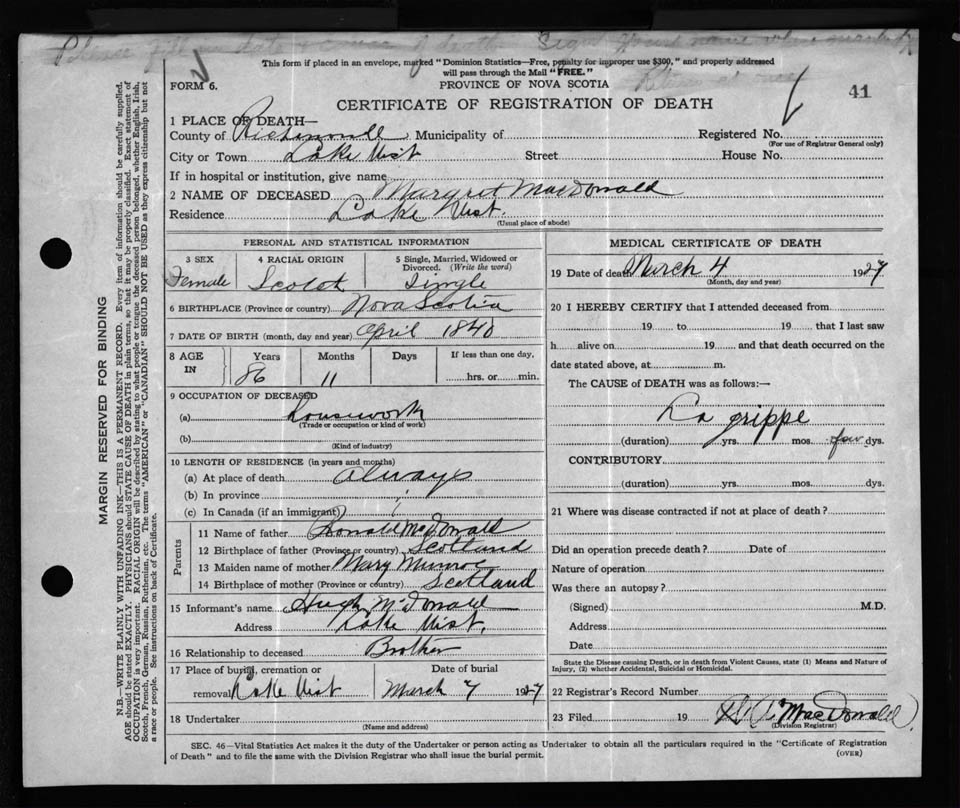 Please fill in date & cause of death. Sign your name when
This form if placed in an envelope, marked "Dominion Statistics—Free, penalty for improper use $300," and properly addressed
will pass through the Mail "FREE."
FORM 6.
PROVINCE OF NOVA SCOTIA
41
CERTIFICATE OF REGISTRATION OF DEATH
1 PLACE OF DEATH—
County of Richmond Municipality of Registered No.
(For use of Registrar General only)
City or Town Lake Uist Street House No.
If in hospital or institution, give name
2 NAME OF DECEASED Margret MacDonald
Residence Lake Uist.
(Usual place of abode)
PERSONAL AND STATISTICAL INFORMATION
3 SEX 4 RACIAL ORIGIN 5 Single, Married, Widowed or Divorced. (Write the word)
Female Scotch Single
6 BIRTHPLACE (Province or country) Nova Scotia
7 DATE OF BIRTH (month, day and year) April 1840
8 AGE IN Years Months Days If less than one day,
86 11 hrs. or min.
9 OCCUPATION OF DECEASED
(a) housework
(Trade or occupation or kind of work)
(b)
(Kind of industry)
10 LENGTH OF RESIDENCE (in years and months)
(a) At place of death always
(b) In province
(c) In Canada (if an immigrant)
Parents
11 Name of father Ronald MacDonald
12 Birthplace of father (Province or country) Scotland
13 Maiden name of mother Mary Munroe
14 Birthplace of mother (Province or country) Scotland
15 Informant's name Hugh McDonald
Address Lake Uist.
16 Relationship to deceased Brother
17 Place of burial, cremation or Date of burial
removal Lake Uist March 7 1927
18 Undertaker
(Name and address)
MEDICAL CERTIFICATE OF DEATH
19 Date of death March 4 1927
(Month, day and year)
20 I HEREBY CERTIFY that I attended deceased from
19 to 19 that I last saw
h alive on 19 and that death occurred on the
date stated above, at m.
The CAUSE of DEATH was as follows:—
La grippe
(duration) yrs. mos. few dys.
CONTRIBUTORY
(duration) yrs. mos. dys.
21 Where was disease contracted if not at place of death?
Did an operation precede death? Date of
Nature of operation
Was there an autopsy?
(Signed) M.D.
Address
Date
State the Disease causing Death, or in death from Violent Causes, state (1) Means and Nature of
Injury, (2) whether Accidental, Suicidal or Homicidal.
22 Registrar's Record Number
23 Filed 19 MacDonald
(Division Registrar)
SEC. 46—Vital Statistics Act makes it the duty of the Undertaker or person acting as Undertaker to obtain all the particulars required in the "Certificate of Registration
of Death" and to file the same with the Division Registrar who shall issue the burial permit.
(OVER)
MARGIN RESERVED FOR BINDING
N.B.—WRITE PLAINLY WITH UNFADING INK—THIS IS A PERMANENT RECORD. Every item of information should be carefully supplied.
AGE should be stated EXACTLY. PHYSICIANS should STATE CAUSE OF DEATH in plain terms, so that it may be properly classified. Exact statement of
OCCUPATION is very important. RACIAL ORIGIN will be described by stating to what people or tongue the deceased person belonged, whether English, Irish,
Scotch, French, German, Russian, Ruthenian, etc. The terms "AMERICAN" or "CANADIAN" SHOULD NOT BE USED as they express citizenship but not
a race or people. See instructions on back of Certificate.